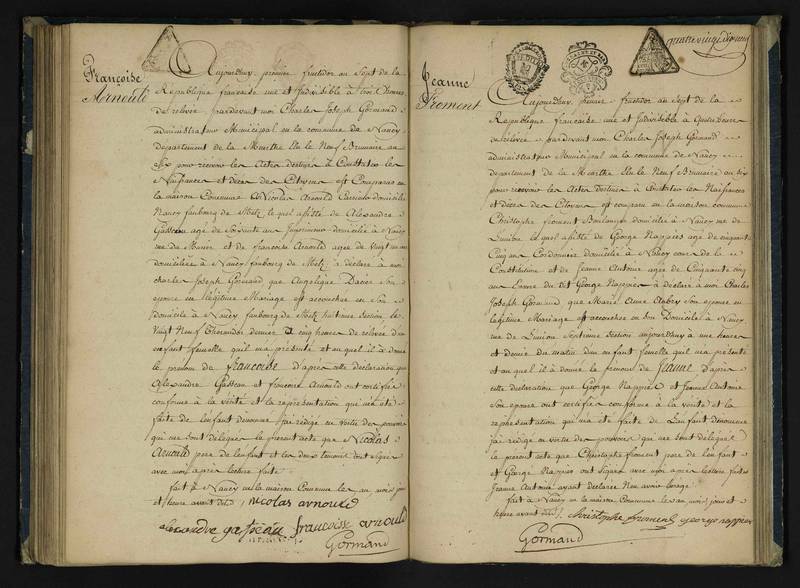 Françoise
Arnould
Aujourdhuy premier fructidor an Sept de la
Republique francaise une et Indivisible à Cinq heures
de relevée pardevant moi Charles Joseph Gormand
administrateur Municipal en la commune de Nancy
departement de la Meurthe Elu le Neuf Brumaire an
six pour recevoir les Actes destinés à Constater les
Naissances et décès des Citoyens est Comparu en
la maison Commune Nicolas Arnould domicilié
Nancy faubourg de Metz lequel assisté de Alexandre
Gasseau agé de Soixante ans domicilié à Nancy
rue du Murier et de francoise Arnould agée de Vingt un ans
domiciliée à Nancy faubourg de Metz à declaré à moi
charles Joseph Gormand que Angelique son
epouse en légitime Mariage est accouchée en son
domicile à Nancy faubourg de Metz huitieme section le
Vingt Neuf thermidor dernier à cinq heures de relevée d'un
enfant femelle quil m'a présenté et auquel il à donné
le prénom de francoise d'après cette déclaration que
Alexandre Gasseau et francoise Arnould ont certifiée
conforme à la vérité et la représentation qui m'a été
faite de l'enfant dénommé j'ai rédigé en vertu des pouvoirs
qui me sont délégués le present acte que Nicolas
Arnould pere de l'enfant et les deux témoins ont signé
avec moi après lecture faite
fait à Nancy en la maison Commune les an mois jour
et heure avant dits, nicolas arnould
alexandre gasseau francoisse arnould
Gormand
quatre vingt dix neuf
Jeanne
Froment
Aujourdhuy premier fructidor an Sept de la
Republique francaise une et Indivisible à Quatre heures
de relevée pardevant moi Charles Joseph Gormand
administrateur Municipal en la commune de Nancy
departement de la Meurthe Elu le Neuf Brumaire an six
pour recevoir les Actes destinés à Constater les Naissances
et décès des Citoyens est comparu en la maison commune
Christophe froment Boulanger domicilié à Nancy rue de
L'union lequel assisté de George Nappier agé de cinquante
Cinq ans Cordonnier domicilié à Nancy cour de la
Constitution et de Jeanne Antoine agée de Cinquante cinq
ans femme du dit George Nappier à déclaré à moi Charles
Joseph Gormand que Marie Anne Aubry son epouse en
legitime Mariage est accouchée en son Domicile à Nancy
rue de L'union Septieme section aujourdhuy à une heure
et demie du matin d'un enfant femelle quil m'a présenté
et auquel il à donné le prenom de Jeanne d'après
cette déclaration que George Nappier et Jeanne Antoine
son epouse ont certifiée conforme à la vérité et la
représentation qui m'a été faite de L'enfant dénommé
j'ai rédigé en vertu des pouvoirs qui me sont délégués
le present acte que Christophe froment pere de l'enfant
et George Nappier ont signé avec moi après lecture faite
Jeanne Antoine ayant déclarée
fait à Nancy en la maison Commune les an mois jour et
heure avant dits christophe froment george nappier
Gormand